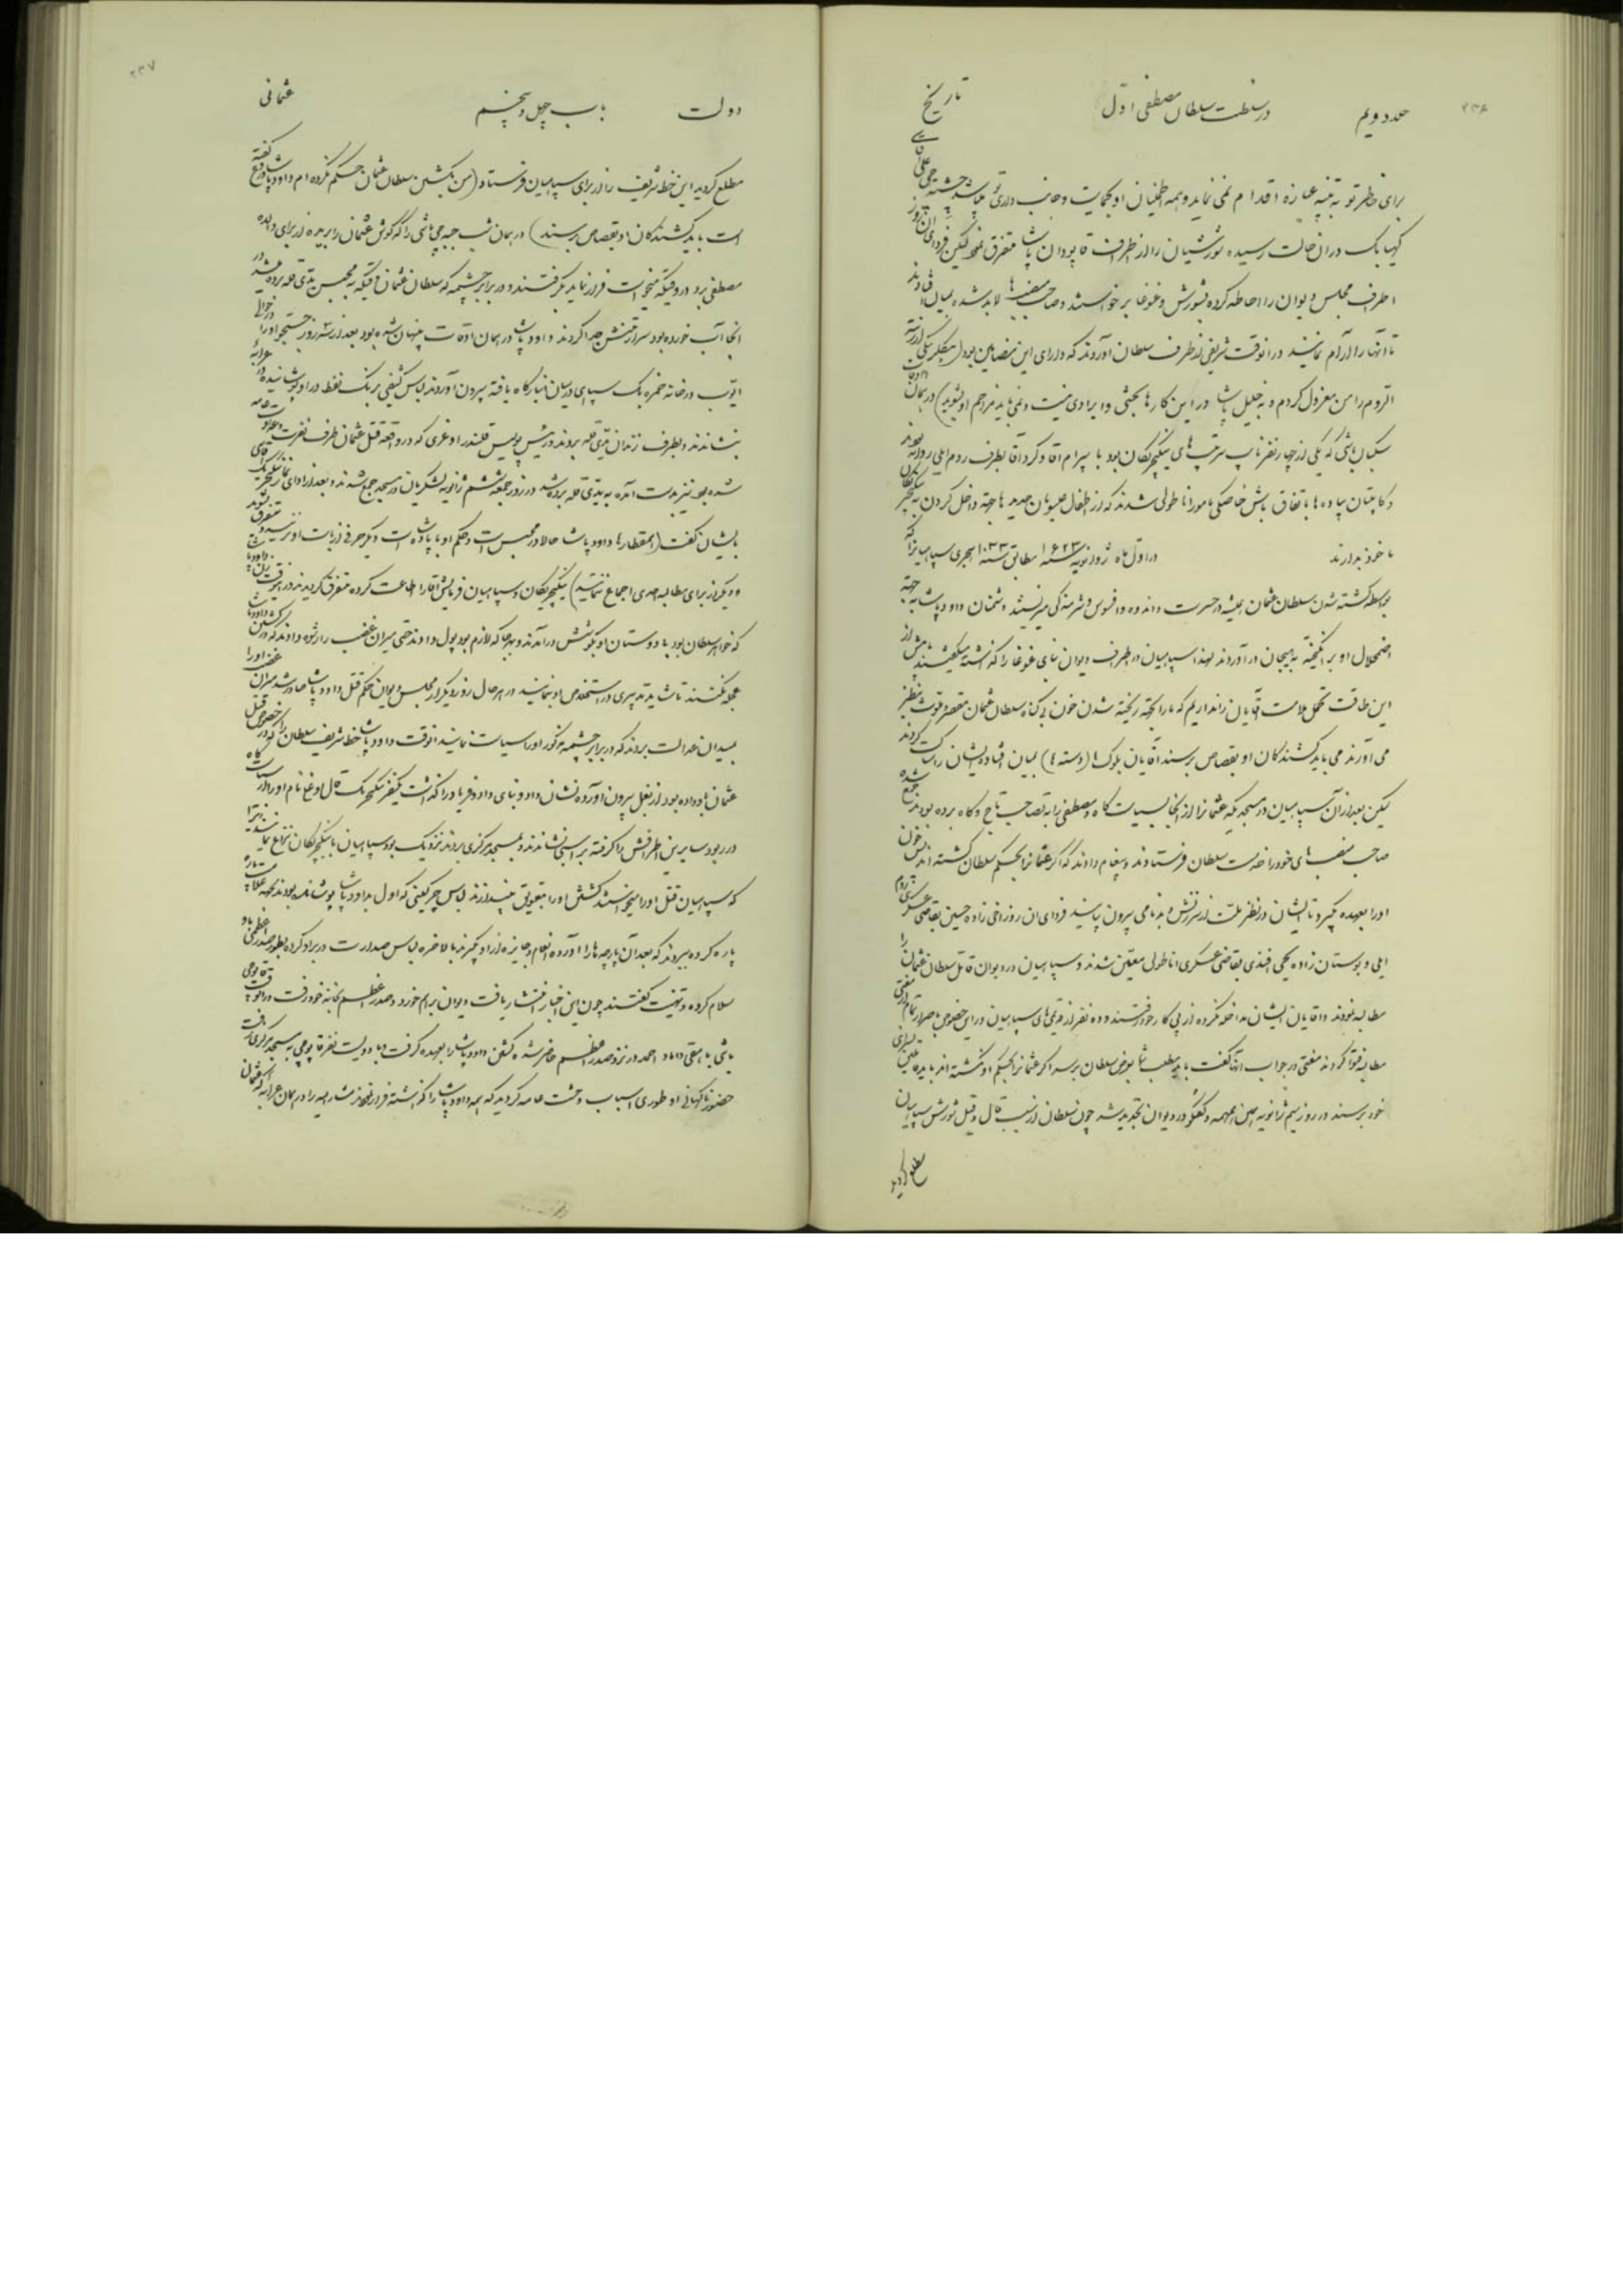 ۲۳۶
جلد دویم در سلطنت سلطان مصطفی اول تاریخ
برای خاطر تو به تنبیه عبازه اقدام نمی نماید و همه اطمینان او بحمایت و جانب داری تو میباشد
کهیابک در ان حالت رسیده شورشیان را از طرف قاپودان پاشا متفرق نمود لیکن فردای ان روز
اطراف مجلس دیوان را احاطه کرده بشورش و غوغا برخواستند و صاحب منصبها لابد شده بمیان افتادند
تا آنها را آرام نمایند در انوقت شریفی از طرف سلطان آوردند که دارای این مضامین بود (بیکلربیکی ارزنة
الروم را من معزول کردم و به خلیل پاشا در این کارها بحثی و ایرادی نیست و نمی باید مزاحم او شوید) در همان
سکبان باشی که یکی از چهار نفر نایب سرتیپ های ینکیچریکان بود با بیرام آقا و کرد آقا بطرف روم ایلی روانه
و کاپیتان پیاده ها باتفاق باش خاصکی مامور اناطولی شدند که از اطفال عیسویان جدید ها جهته داخل کردن به ینکیچریکان
ماخوذ بدارند در اول ماه ژوانویه سنه ۱۶۲۳ مطابق سنه ۱۰۳۳ هجری سپاهیان که
بواسطه کشته شدن سلطان عثمان همیشه در حسرت و اندوه و افسوس و شرمندگی میزیستند دشمنان داود پاشا بجهته
اضمحلال او برانگیخته به هیجان در آوردند لهذا سپاهیان در اطراف دیوان بنای غوغا را گذاشته میگفتند بیش از
این طاقت تحمل ملامت آقایان را نداریم که ما را بجهته ریخته شدن خون بی گناه سلطان عثمان مقصر و قوت بنظر
می آورند می باید کشندگان او بقصاص برسند آقایان بلوک ها (دسته ها) بمیان افتاده ایشان را ساکت کردند
لیکن بعد از آن سپاهیان در مسجدیکه عثمانرا از انجا بسیاست گاه و مصطفی را به تصاحب تاج و گاه برده بودند جمع شده
صاحب منصب های خود را خدمت سلطان فرستادند و پیغام دادند که اگر عثمانرا بحکم سلطان کشته اند پس خون
او را بعهده بگیرد تا ایشان در نظر ملت از سرزنش و بدنامی بیرون بیایند فردای ان روز اخی زاده حسین بقاضی عسکری روم
ایلی و بوستان زاده یحیی افندی بقاضی عسکری اناطولی معین شدند و سپاهیان در دیوان قاتل سلطان عثمان را
مطالبه نمودند و اقایان ایشان مداخله نکرده از پی کار خود رفتند و ده نفر از قدیمی های سپاهیان در این خصوص باصرار تمام از مفتی
مطالبه فتوا کردند مفتی در جواب آنها گفت باید مطلب شما بعرض سلطان برسد اگر عثمانرا بحکم او نکشته اند باید قاتلین بسزای
خود برسند در روز سیم ژانویه همین همهمه و گفتگو در دیوان تجدید شد چون سلطان از سبب قال و قیل شورش سپاهیان
مطلع گردید
۲۳۷
دولت باب چهل و پنجم عثمانی
مطلع گردید این خط شریف را از برای سپاهیان فرستاد (من بکشتن سلطان عثمان حکم نکرده ام داود پاشا دروغ گفته
است باید کشندگان او بقصاص برسند) در همان شب جبه چی باشی را که گوش عثمان را بریده از برای والده
مصطفی برد در وقتیکه میخواست فرار نماید بگرفتند و در برابر چشمه که سلطان عثمان وقتیکه به محبس یدی قله برده میشد در
انجا آب خورده بود سر از تنش جدا کردند و داود پاشا در همان اوقات پنهان شده بود بعد از سه روز جستجو او را در حوالی
ایوب در خانه خمره یک سپاهی در میان انبار گاه یافته بیرون آوردند لباس کثیفی برنگ نفط در او پوشانیده در عرابه
بنشاندند و بطرف زندان یدی قله بردند و رئیس پولیس قلندر اوغری که در واقعه قتل عثمان طرف نفرت و عداوت عامه
شده بود نیز بدست آمده به یدی قله برده شد در روز جمعه ششم ژانویه لشکریان در مسجد جمع شدند و بعد از ادای نماز
بایشان گفت (همقطارها داود پاشا حالا در محبس است و حکم او با پادشاه است دیگر حرفی در ثبات او نزنید متفرق شوید
و دیگر از برای مطالبه امری اجماع ننمائید) ینکیچریکان و سپاهیان فرمایش آقا را اطاعت کرده متفرق گردیدند در انوقت زن داود پاشا
که خواهر سلطان بود با دوستان او بکوشش درآمدند و بهر جا که لازم بود پول دادند حتی میران غضب را رشوه دادند که در کشتن داود پاشا
عجله نکنند تا شاید تدبیری در استخلاص او نمایند در هر حال روز دیگر از مجلس دیوان حکم قتل داود پاشا صادر شد میران غضب او را
بمیدان عدالت بردند که در برابر چشمه مذکور او را سیاست نمایند انوقت داود پاشا خط شریف سلطان را که در خصوص قتل
عثمان باو داده بود از بغل بیرون آورده نشان داد و بنای داد و فریاد را گذاشت یکنفر ینکیچریک قال اوغلی نام او را از سیاست گاه
در ربود سایرین اطرافش را گرفته بر اسبی نشاندند و بمسجد مرکزی بردند نزدیک بود سپاهیان با ینکیچریکان نزاع نمایند زیرا
که سپاهیان قتل او را میخواستند کشتن او را بتعویق بیندازند لباس چرکینی که اول به داود پاشا پوشانده بودند
پاره کرده میبردند که بعد آن پارچه ها را آورده انعام و جایزه از او بگیرند بالاخره لباس صدارت در بر او کرده بطور صدر اعظمی باو
سلام کرده و تهنیت گفتند چون این اخبار انتشار یافت دیوان برهم خورد و صدر اعظم بخانه خود رفت در انوقت قاپوچی
باشی باسمقی داماد احمد در نزد صدر اعظم حاضر شده کشتن داود پاشا را بعهده گرفت و با دویست نفر قاپوچی به مسجد مرکزی رفت
حضور ناگهانی او طوری اسباب وحشت عامه گردید که همه داود پاشا را گذاشته فرار نمودند مشارالیه را در همان عرابه که عثمان